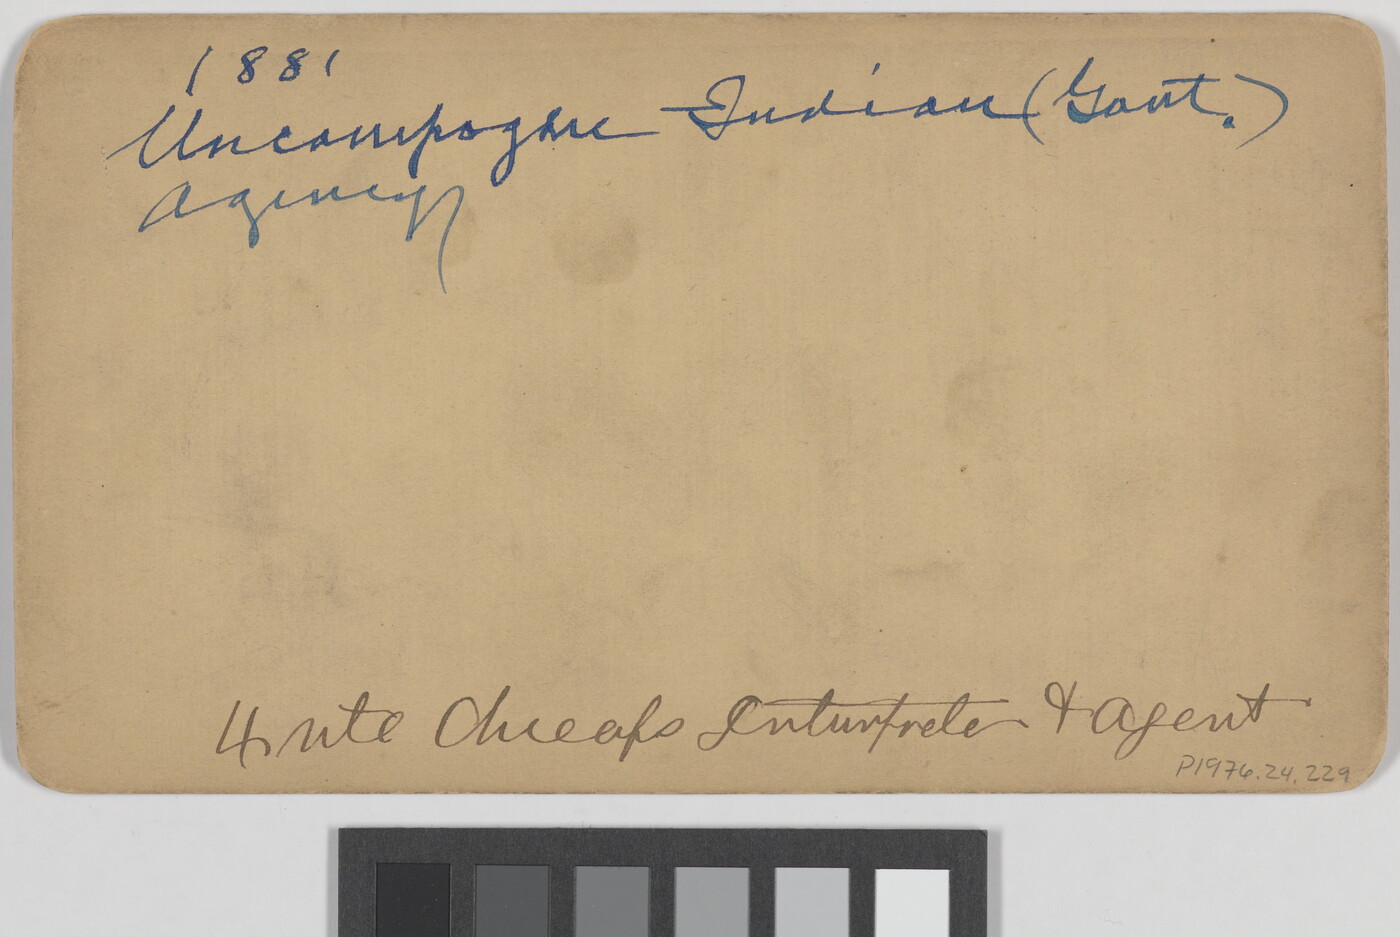 1881
Uncompaghre Indian (Govt.)
Agency
4 ute Cheafs Interpreter & Agent
P1976.24.229